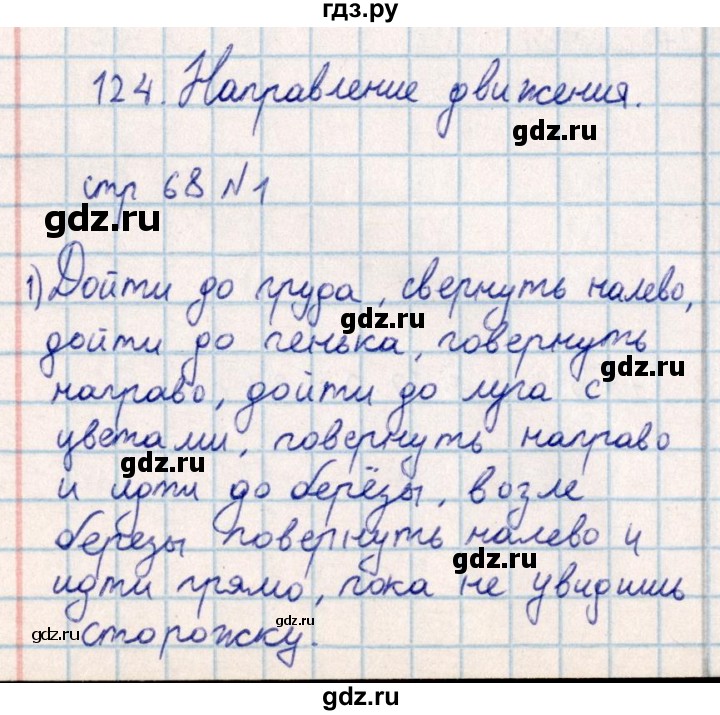 гдз.ру
124. Направление движения.
gdz.ru
стр 68 №1
gdz.ru
1) Дойти до пруда, свернуть налево,
gdz.ru
дойти до пенька, повернуть
gdz.ru
направо, дойти до луга с
цветами, повернуть направо
gdz.ru
и идти до берёзы, возле
берёзы повернуть налево и
gdz.ru
идти прямо, пока не увидишь
gdz.ru
сторожку.
gdz.ru
gdz.ru